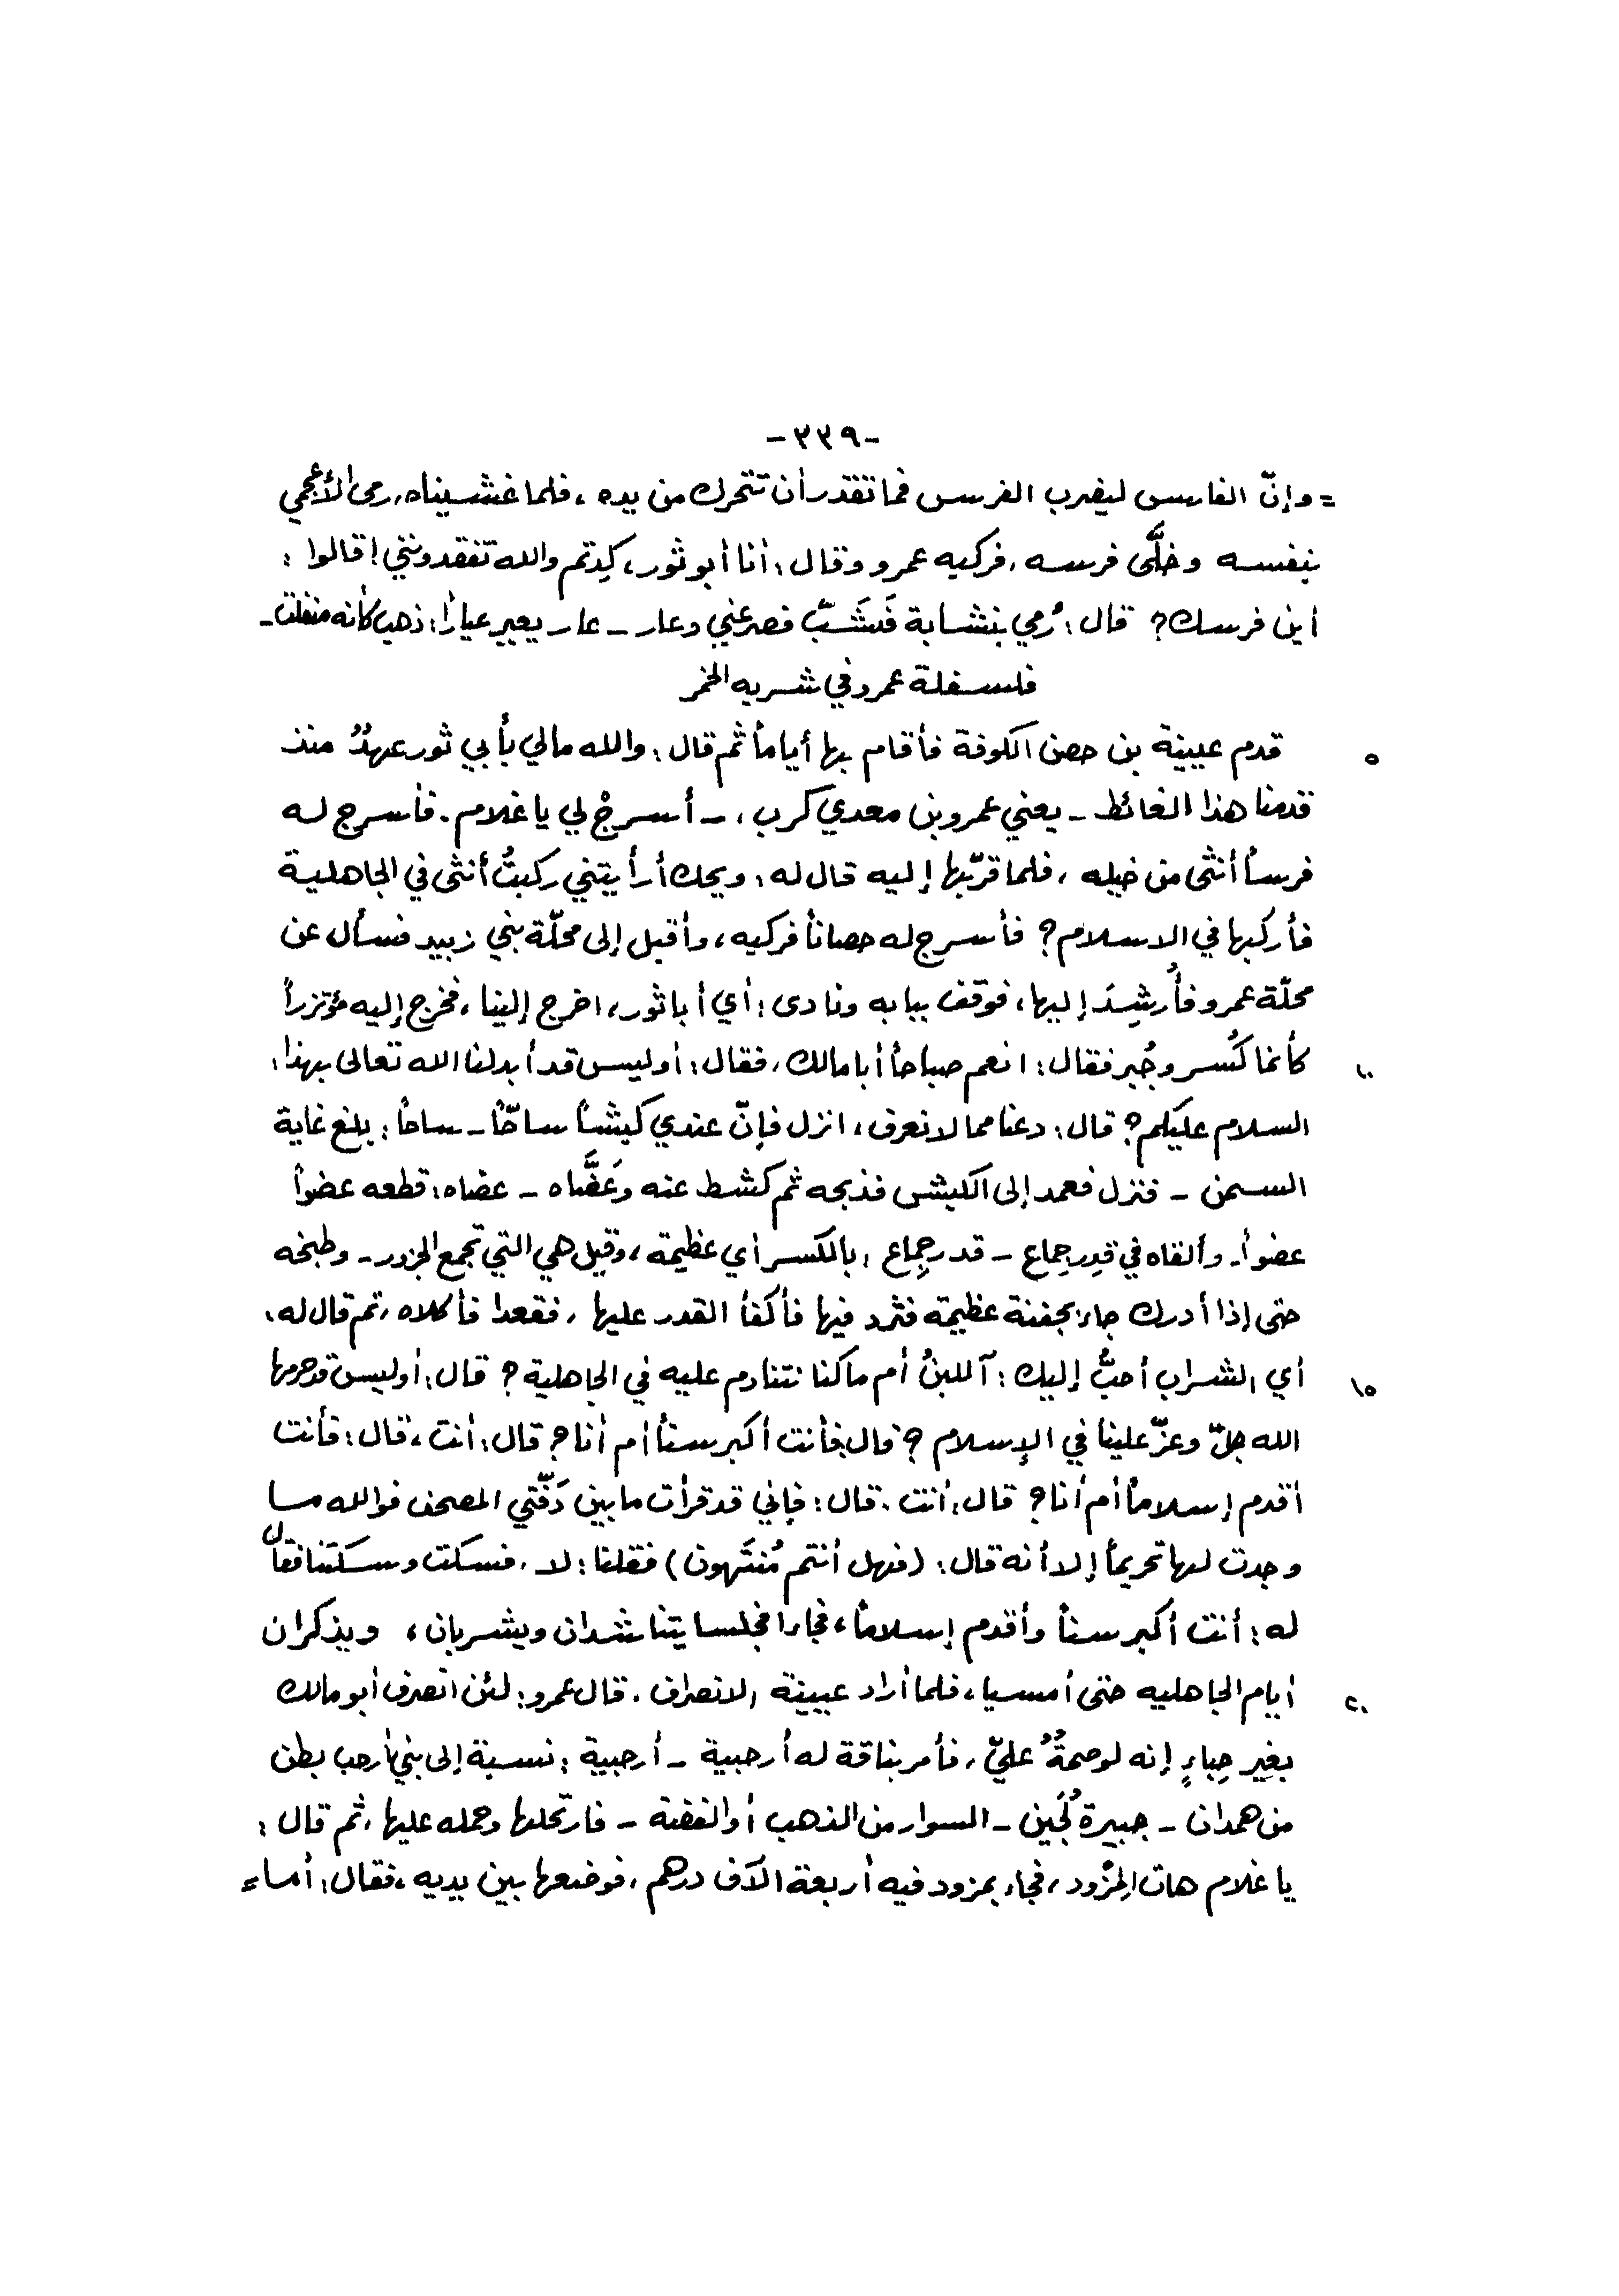 -٣٣٩-
= وإنّ الفارس ليضرب الفرس فما تقدر أن تتحرك من يده ، فلما غشيناه، رمى الأعجمي
بنفسه وخلَّى فرسه ، فركبه عمرو وقال : أنا أبو ثور ، كِدتم والله تفقدونني ! قالوا :
أين فرسك ؟ قال : رُمي بنشابة فَشَبّ فصرعني وعار _ عار يعير عياراً : ذهب كأنه منفلت _
فلسفلة عمرو في شربه الخمر
٥ قدم عيينة بن حصن الكوفة فأقام بها أياماً ثم قال : والله مالي بأبي ثور عهدٌ منذ
قدمنا هذا الغائط _ يعني عمرو بن معدي كرب ، _ أسرجْ لي يا غلام . فأسرج له
فرساً أنثى من خيله ، فلما قرّبها إليه قال له : ويحك أرأيتني ركبتُ أنثى في الجاهلية
فأركبها في الاسلام ؟ فأسرج له حصاناً فركبه ، وأقبل إلى محلّة بني زبيد فسأل عن
محلّة عمرو فأُرشِدَ إليها ، فوقف ببابه ونادى : أي أبا ثور ، اخرج إلينا ، فخرج إليه مؤتزراً
١٠ كأنما كُسر وجُبر فقال : انعم صباحاً أبا مالك ، فقال : أوليس قد أبدلنا الله تعالى بهذا :
السلام عليكم ؟ قال : دعنا مما لا نعرف ، انزل فإنّ عندي كبشاً ساحّاً _ ساحاً : بلغ غاية
السمن _ فنزل فعمد إلى الكبش فذبحه ثم كشط عنه وَعَضَّاه _ عضاه : قطعه عضواً
عضواً _ وألقاه في قِدر جِماع _ قدر جِماع : بالكسر أي عظيمة ، وقيل هي التي تجمع الجزور _ وطبخه
حتى إذا أدرك جاء بجفنة عظيمة فثرد فيها فأكفأ القدر عليها ، فقعدا فأكلاه ، ثم قال له :
١٥ أي الشراب أحبُّ إليك : آللبنُ أم ما كنا نتنادم عليه في الجاهلية ؟ قال : أوليس قد حرمها
الله جلّ وعزّ علينا في الإسلام ؟ قال : فأنت أكبر سناً أم أنا ؟ قال : أنت ، قال : فأنت
أقدم إسلاماً أم أنا ؟ قال : أنت . قال : فإني قد قرأت ما بين دَفّتي المصحف فوالله ما
وجدت لها تحريماً إلا أنه قال : ( فهل أنتم مُنتَهون ) فقلنا : لا . فسكت وسكتنا فقال
له : أنت أكبر سناً وأقدم إسلاماً ، فجاءا فجلسا يتناشدان ويشربان ، ويذكران
٢٠ أيام الجاهليه حتى أمسيا ، فلما أراد عيينة الانصراف . قال عمرو : لئن انصرف أبو مالك
بغير حِباءٍ إنه لوصمةٌ عليّ ، فأمر بناقة له أرحبية _ أرحبية : نسبة إلى بني أرحب بطن
من همدان _ جبيرة لُجَين _ السوار من الذهب أو الفضة _ فارتحلها وحمله عليها ، ثم قال :
يا غلام هات المِزْود ، فجاء بمزود فيه أربعة آلاف درهم ، فوضعها بين يديه ، فقال : أما =